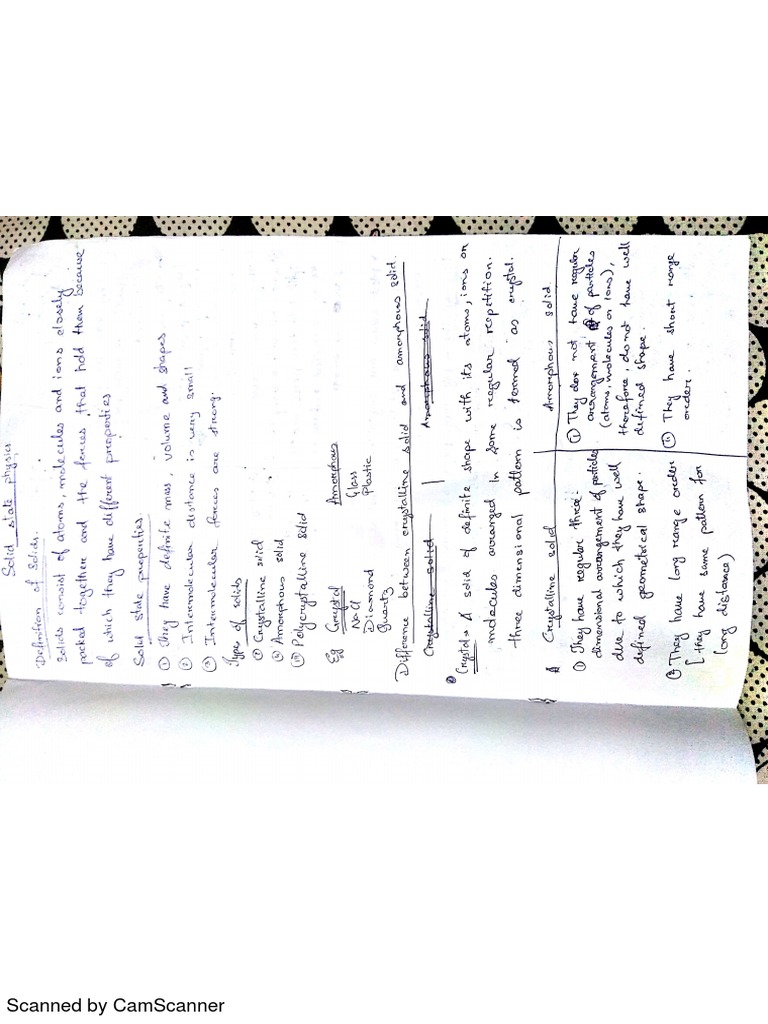 Solid state physics
Definition of Solids.
Solids consist of atoms, molecules and ions closely
packed together and the forces that hold them because
of which they have different properties
Solid state properties
① They have definite mass, volume and shapes
② Intermolecular distance is very small
③ Intermolecular forces are strong.
Types of solids
① Crystalline solid
② Amorphous solid
③ Polycrystalline solid
Eg Crystal Amorphous
NaCl Glass
Diamond Plastic
Quartz
Difference between crystalline solid and amorphous solid.
Crystalline solid Amorphous solid
Crystal → A solid of definite shape with its atoms, ions or
molecules arranged in some regular repetition.
three dimensional pattern is termed as crystal.
Crystalline solid Amorphous solid
① They have regular three-
dimensional arrangement of particles
due to which they have well
defined geometrical shape.
① They doe not have regular
arrangement of particles
(atoms, molecules or ions),
therefore, do not have well
defined shape.
② They have long range order
[they have same pattern for
long distance)
② They have short range
order.
Scanned by CamScanner